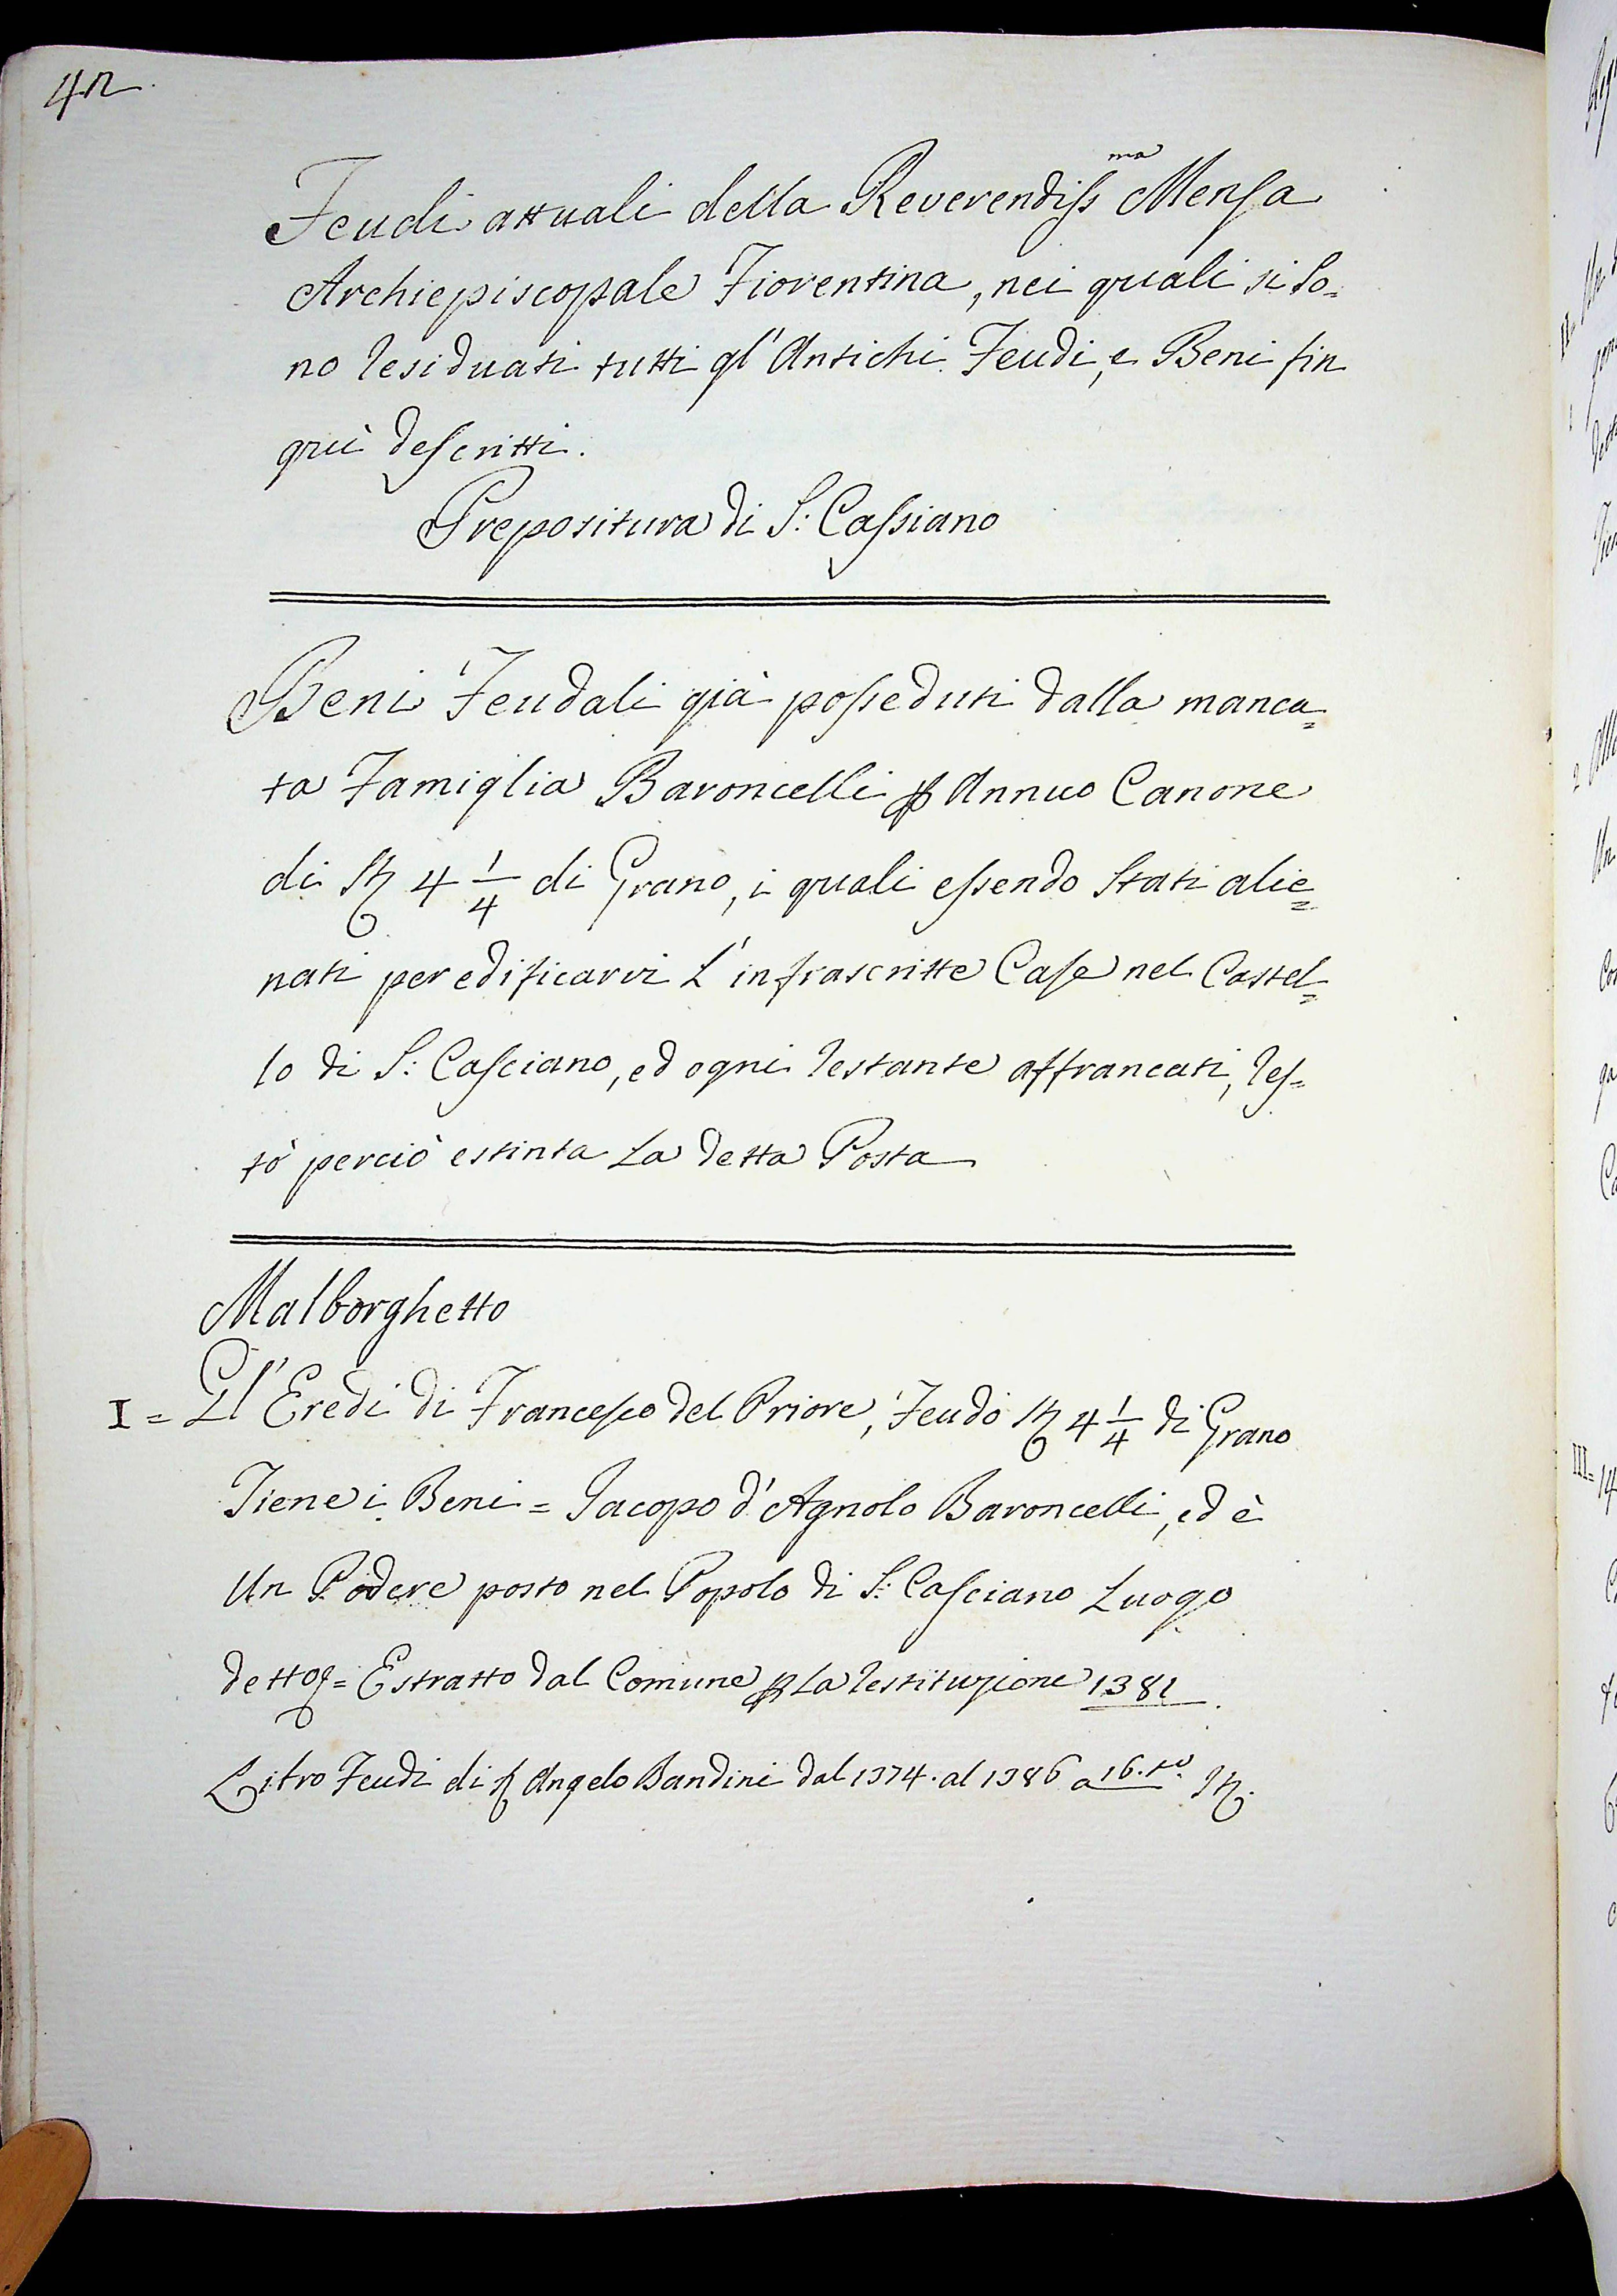 42
Feudi attuali della Reverendiss.ma Mensa
Archiepiscopale Fiorentina, nei quali si so=
no residuati tutti gl'Antichi Feudi, e Beni fin
quì descritti.
Prepositura di S: Cassiano
Beni Feudali già posseduti dalla manca=
ta Famiglia Baroncelli p Annuo Canone
di St 4 1/4 di Grano, i quali essendo stati alie=
nati per edificarvi L'infrascritte Case nel Castel=
lo di S: Casciano, ed ogni restante affrancati, res=
tò perciò estinta La detta Posta
Malborghetto
I = Gl'Eredi di Francesco del Priore, Feudo St 4 1/4 di Grano
Tiene i Beni = Jacopo d'Agnolo Baroncelli, ed è
Un Podere posto nel Popolo di S: Casciano Luogo
detto = Estratto dal Comune p La restituzione 1381.
Libro Feudi di Angelo Bandini dal 1374. al 1386 a 16.